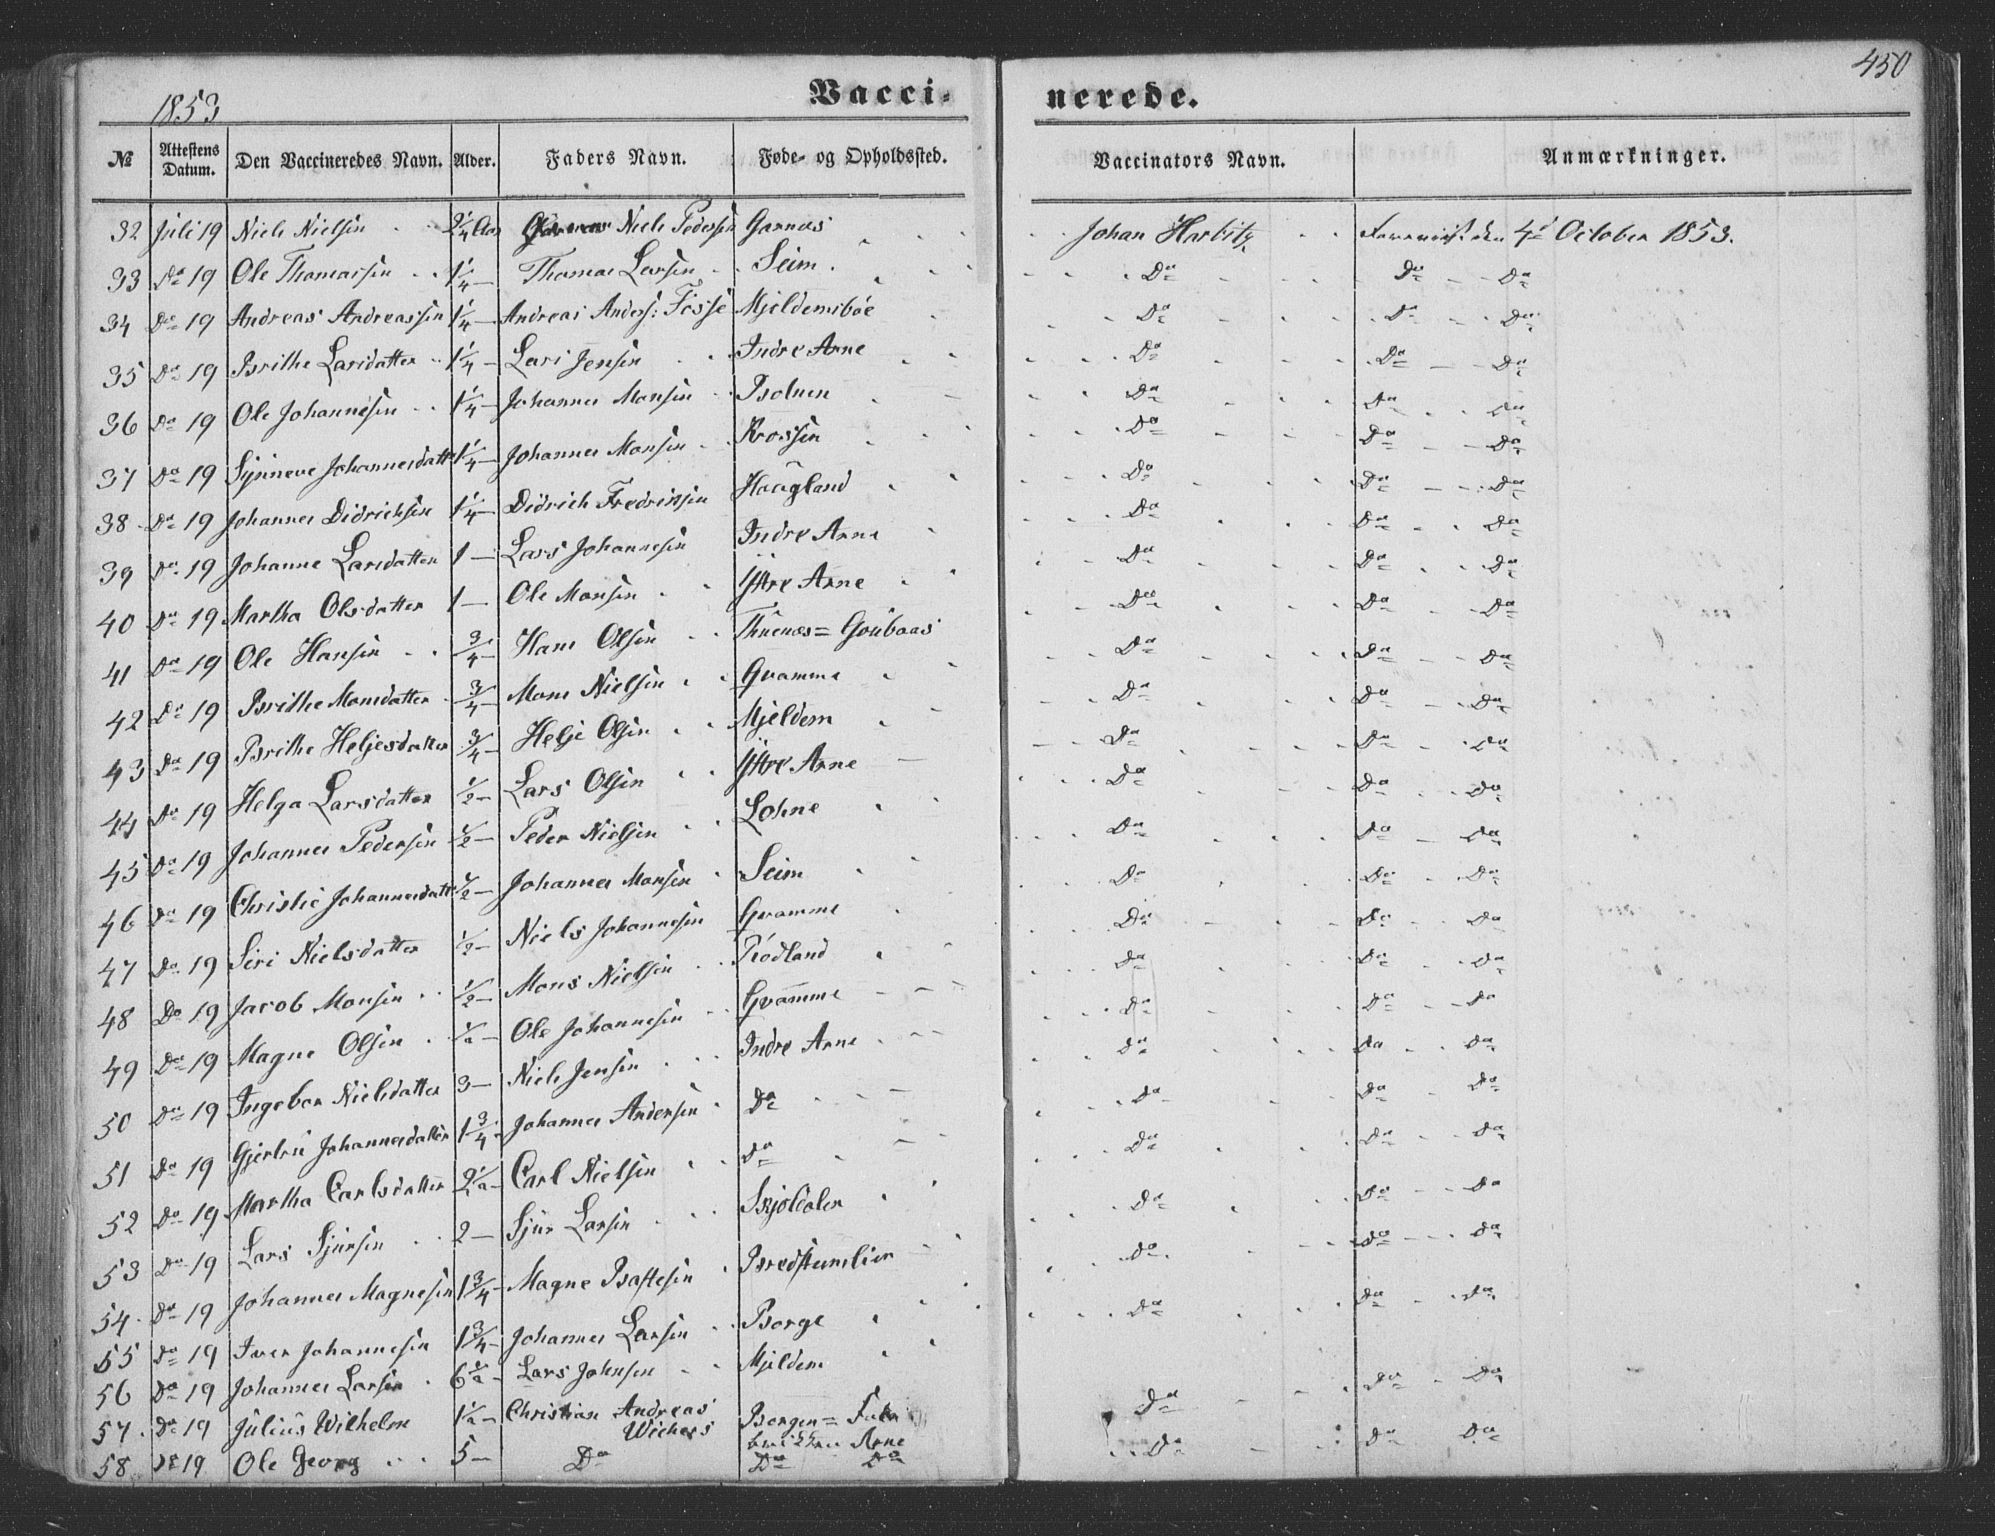 450
1853
Vacci- nerede.
№ Attestens Datum. Den Vaccineredes Navn. Alder. Faders Navn. Føde- og Opholdssted. Vaccinators Navn. Anmærkninger.
32 Juli 19 Niels Nielsen 2 1/4 Aar Niels Pedersen Garnæs Johan Harbitz den 4de October 1853.
33 Do 19 Ole Thomassen 1 1/4 Thomas Larsen Seim Do Do Do
34 Do 19 Andreas Andreassen 1 1/4 Andreas Anders: Fosse Mjeldemsbøe Do Do Do
35 Do 19 Brithe Larsdatter 1 1/4 Lars Jensen Indre Arne Do Do Do
36 Do 19 Ole Johannesen 1 1/4 Johannes Monsen Do Do Do
37 Do 19 Synneve Johannesdatter 1 1/4 Johannes Monsen Krossen Do Do Do
38 Do 19 Johannes Didrichsen 1 1/4 Didrich Fredriksen Haugland Do Do Do
39 Do 19 Johanne Larsdatter 1 Lars Johannesen Indre Arne Do Do Do
40 Do 19 Martha Olsdatter 1 Ole Monsen Ytre Arne Do Do Do
41 Do 19 Ole Hansen 3/4 Hans Olsen Do Do Do
42 Do 19 Brithe Monsdatter 3/4 Mons Nielsen Gvamme Do Do Do
43 Do 19 Brithe Heljesdatter 3/4 Helje Olsen Mjeldem Do Do Do
44 Do 19 Helga Larsdatter 1/2 Lars Olsen Ytre Arne Do Do Do
45 Do 19 Johannes Pedersen 1/2 Peder Nielsen Lohne Do Do Do
46 Do 19 Christie Johannesdatt 1/2 Johannes Monsen Seim Do Do Do
47 Do 19 Siri Nielsdatter 1/2 Niels Johannesen Gvamme Do Do Do
48 Do 19 Jacob Monsen 1/2 Mons Nielsen Rødland Do Do Do
49 Do 19 Magne Olsen 1/2 Ole Johannesen Gvamme Do Do Do
50 Do 19 Ingebor Nielsdatter 3 Niels Jensen Indre Arne Do Do Do
51 Do 19 Gjertru Johannesdatter 1 3/4 Johannes Andersen Do Do Do Do
52 Do 19 Martha Carlsdatter 2 1/2 Carl Nielsen Do Do Do Do
53 Do 19 Lars Sjursen 2 Sjur Larsen Skjoldalen Do Do Do
54 Do 19 Johannes Magnesen 1 3/4 Magne Do Do Do
55 Do 19 Iver Johannesen 1 3/4 Johannes Larsen Borge Do Do Do
56 Do 19 Johannes Larsen 6 1/2 Lars Johnsen Mjeldem
57 Do 19 Julius Wilhelm 1 1/2 Christian Andreas Wichers Bergen = Arne Do Do Do
58 Do 19 Ole Georg 5 Do Do Do Do Do Do